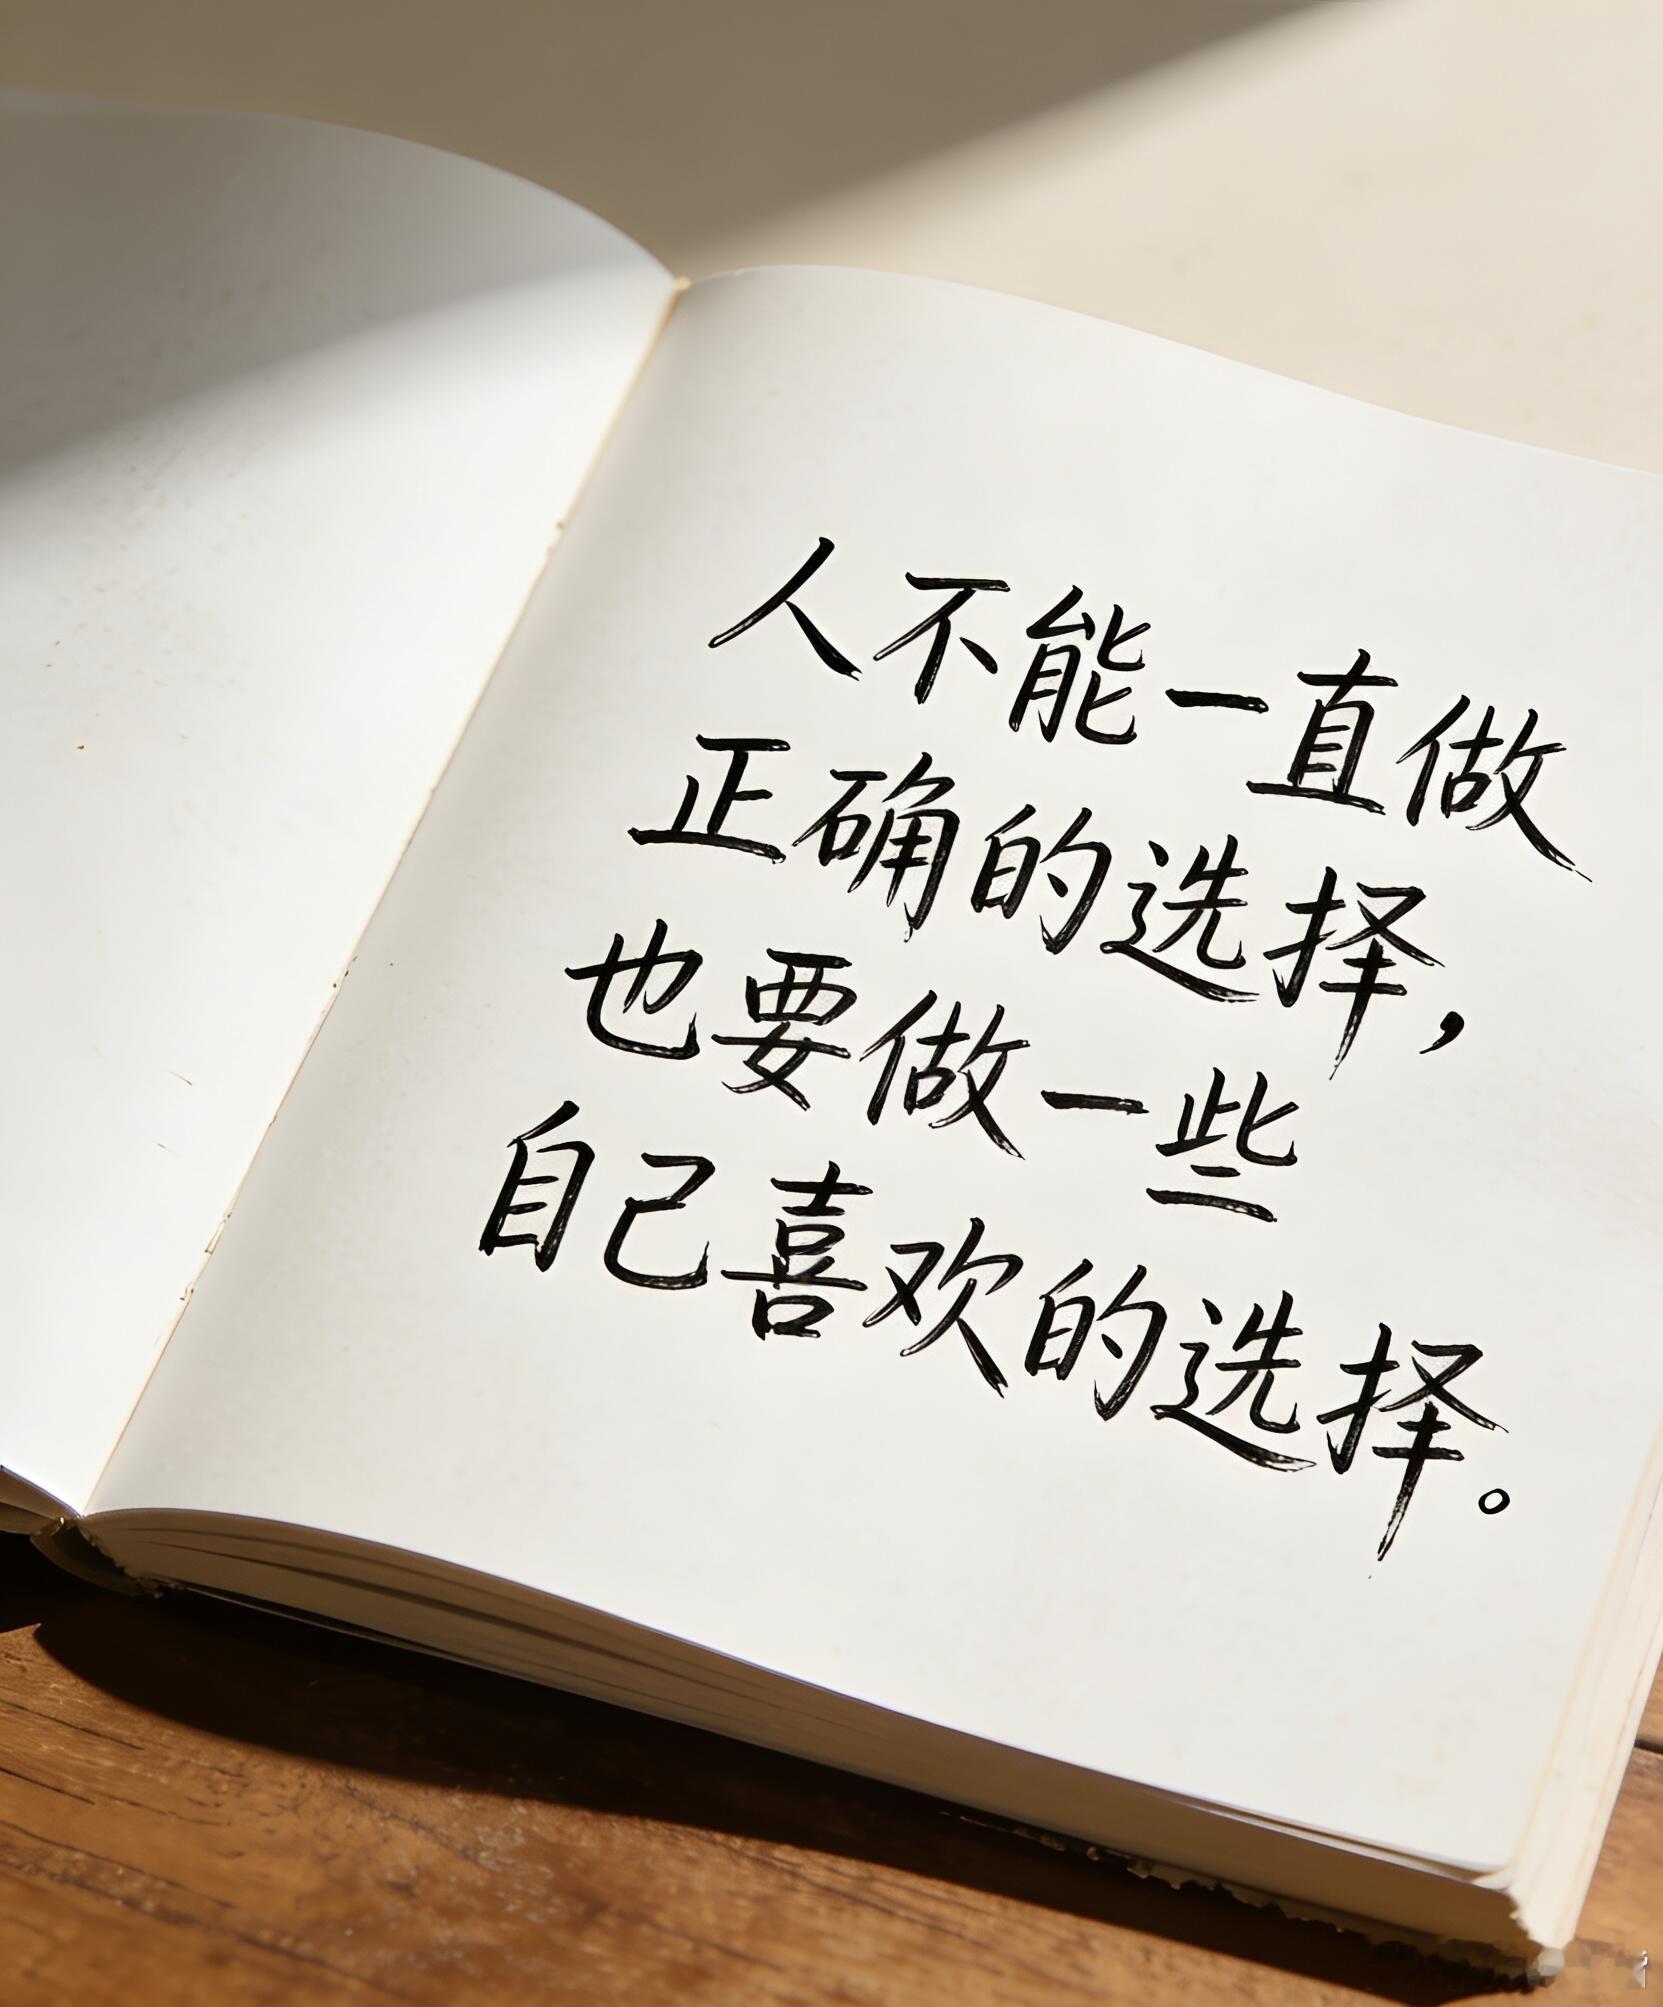 人不能一直做
正确的选择，
也要做一些
自己喜欢的选择。